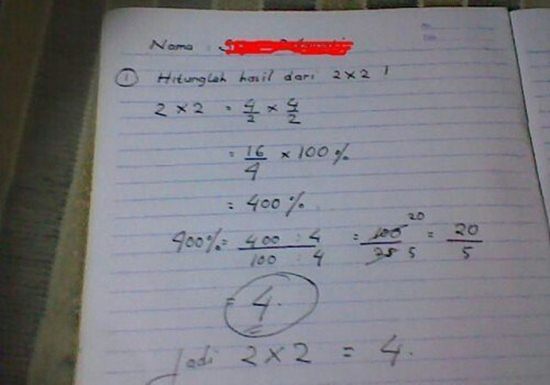 Nama :
① Hitunglah hasil dari 2 x 2 !
2 x 2 = 4/2 x 4/2
= 16/4 x 100 %
= 400 %
400% = 400 : 4 / 100 : 4 = 100 20 / 25 5 = 20/5
= 4.
Jadi 2 x 2 = 4.